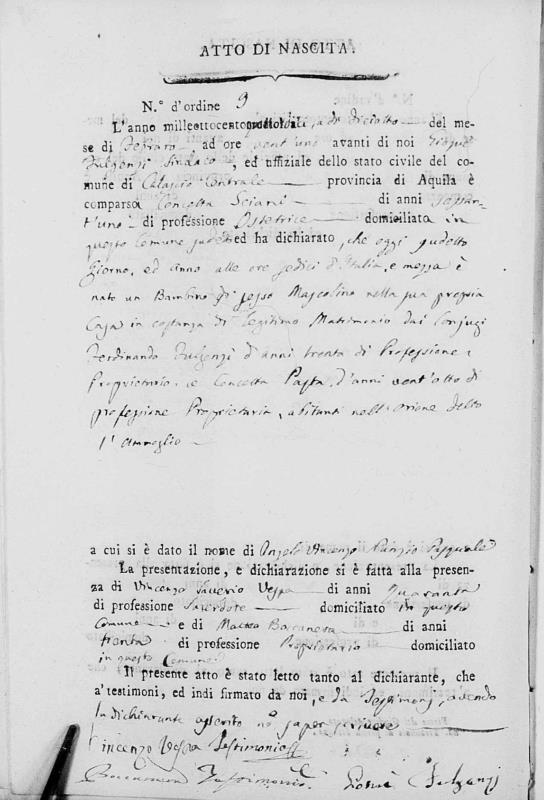 ATTO DI NASCITA.
N.° d'ordine 9
L'anno milleottocento a dì Dieciotto del me-
se di Febraro, ad ore vent'uno avanti di noi Giosuè
Fulgenzi Sindaco, ed uffiziale dello stato civile del co-
mune di Calascio Centrale provincia di Aquila è
comparsa Concetta Sciani di anni sessan-
t'uno di professione Ostetrice domiciliata in
questo Comune sudetto ed ha dichiarato, che oggi sudetto
giorno, ed anno alle ore sedici d'Italia, e mezza è
nato un Bambino di sesso Mascolino nella sua propria
Casa in costanza di legitimo Matrimonio dai Conjugi
Ferdinando Fulgenzi d'anni trenta di Professione
Proprietario, e Concetta Pasta, d'anni vent'otto di
professione Proprietaria, abitanti nell' detto
l'
a cui si è dato il nome di Angelo Vincenzo Nunzio Pasquale
La presentazione, e dichiarazione si è fatta alla presen-
za di Vincenzo Saverio Vespa di anni Quaranta
di professione Sacerdote domiciliato in questo
Comune e di Matteo di anni
trenta di professione Proprietario domiciliato
in questo Comune
Il presente atto è stato letto tanto al dichiarante, che
a' testimonj, ed indi firmato da noi, e da Testimonj, avendo
la dichiarante asserito non saper scrivere
Vincenzo Vespa Testimonio
Testimonio Giosuè Fulgenzi